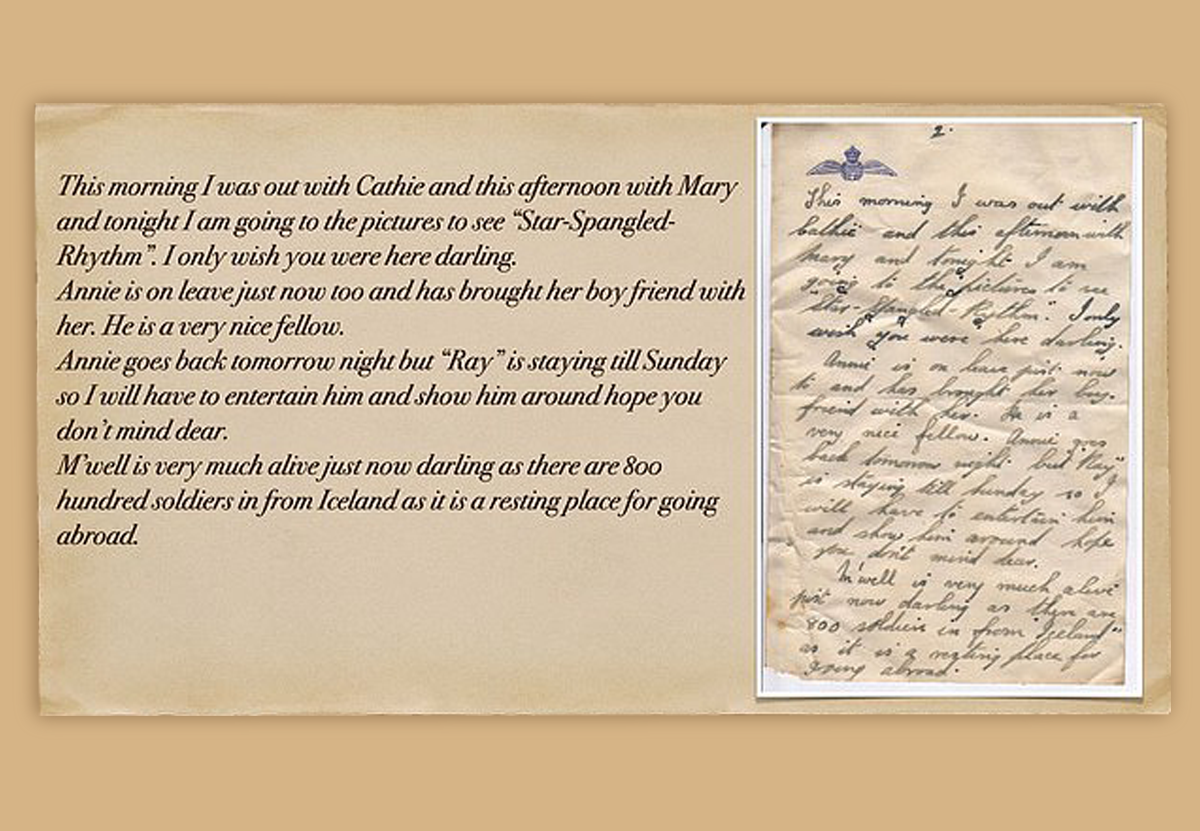 This morning I was out with Cathie and this afternoon with Mary
and tonight I am going to the pictures to see “Star-Spangled-
Rhythm”. I only wish you were here darling.
Annie is on leave just now too and has brought her boy friend with
her. He is a very nice fellow.
Annie goes back tomorrow night but “Ray” is staying till Sunday
so I will have to entertain him and show him around hope you
don’t mind dear.
M’well is very much alive just now darling as there are 800
hundred soldiers in from Iceland as it is a resting place for going
abroad.
2.
This morning I was out with
Cathie and this afternoon with
Mary and tonight I am
going to the pictures to see
"Star-Spangled-Rythm". I only
wish you were here darling.
Annie is on leave just now
to and has brought her boy-
friend with her. He is a
very nice fellow. Annie goes
back tomorrow night but "Ray"
is staying till Sunday so I
will have to entertain him
and show him around hope
you don't mind dear.
M'well is very much alive
just now darling as there are
800 soldiers in from "Iceland"
as it is a resting place for
going abroad.